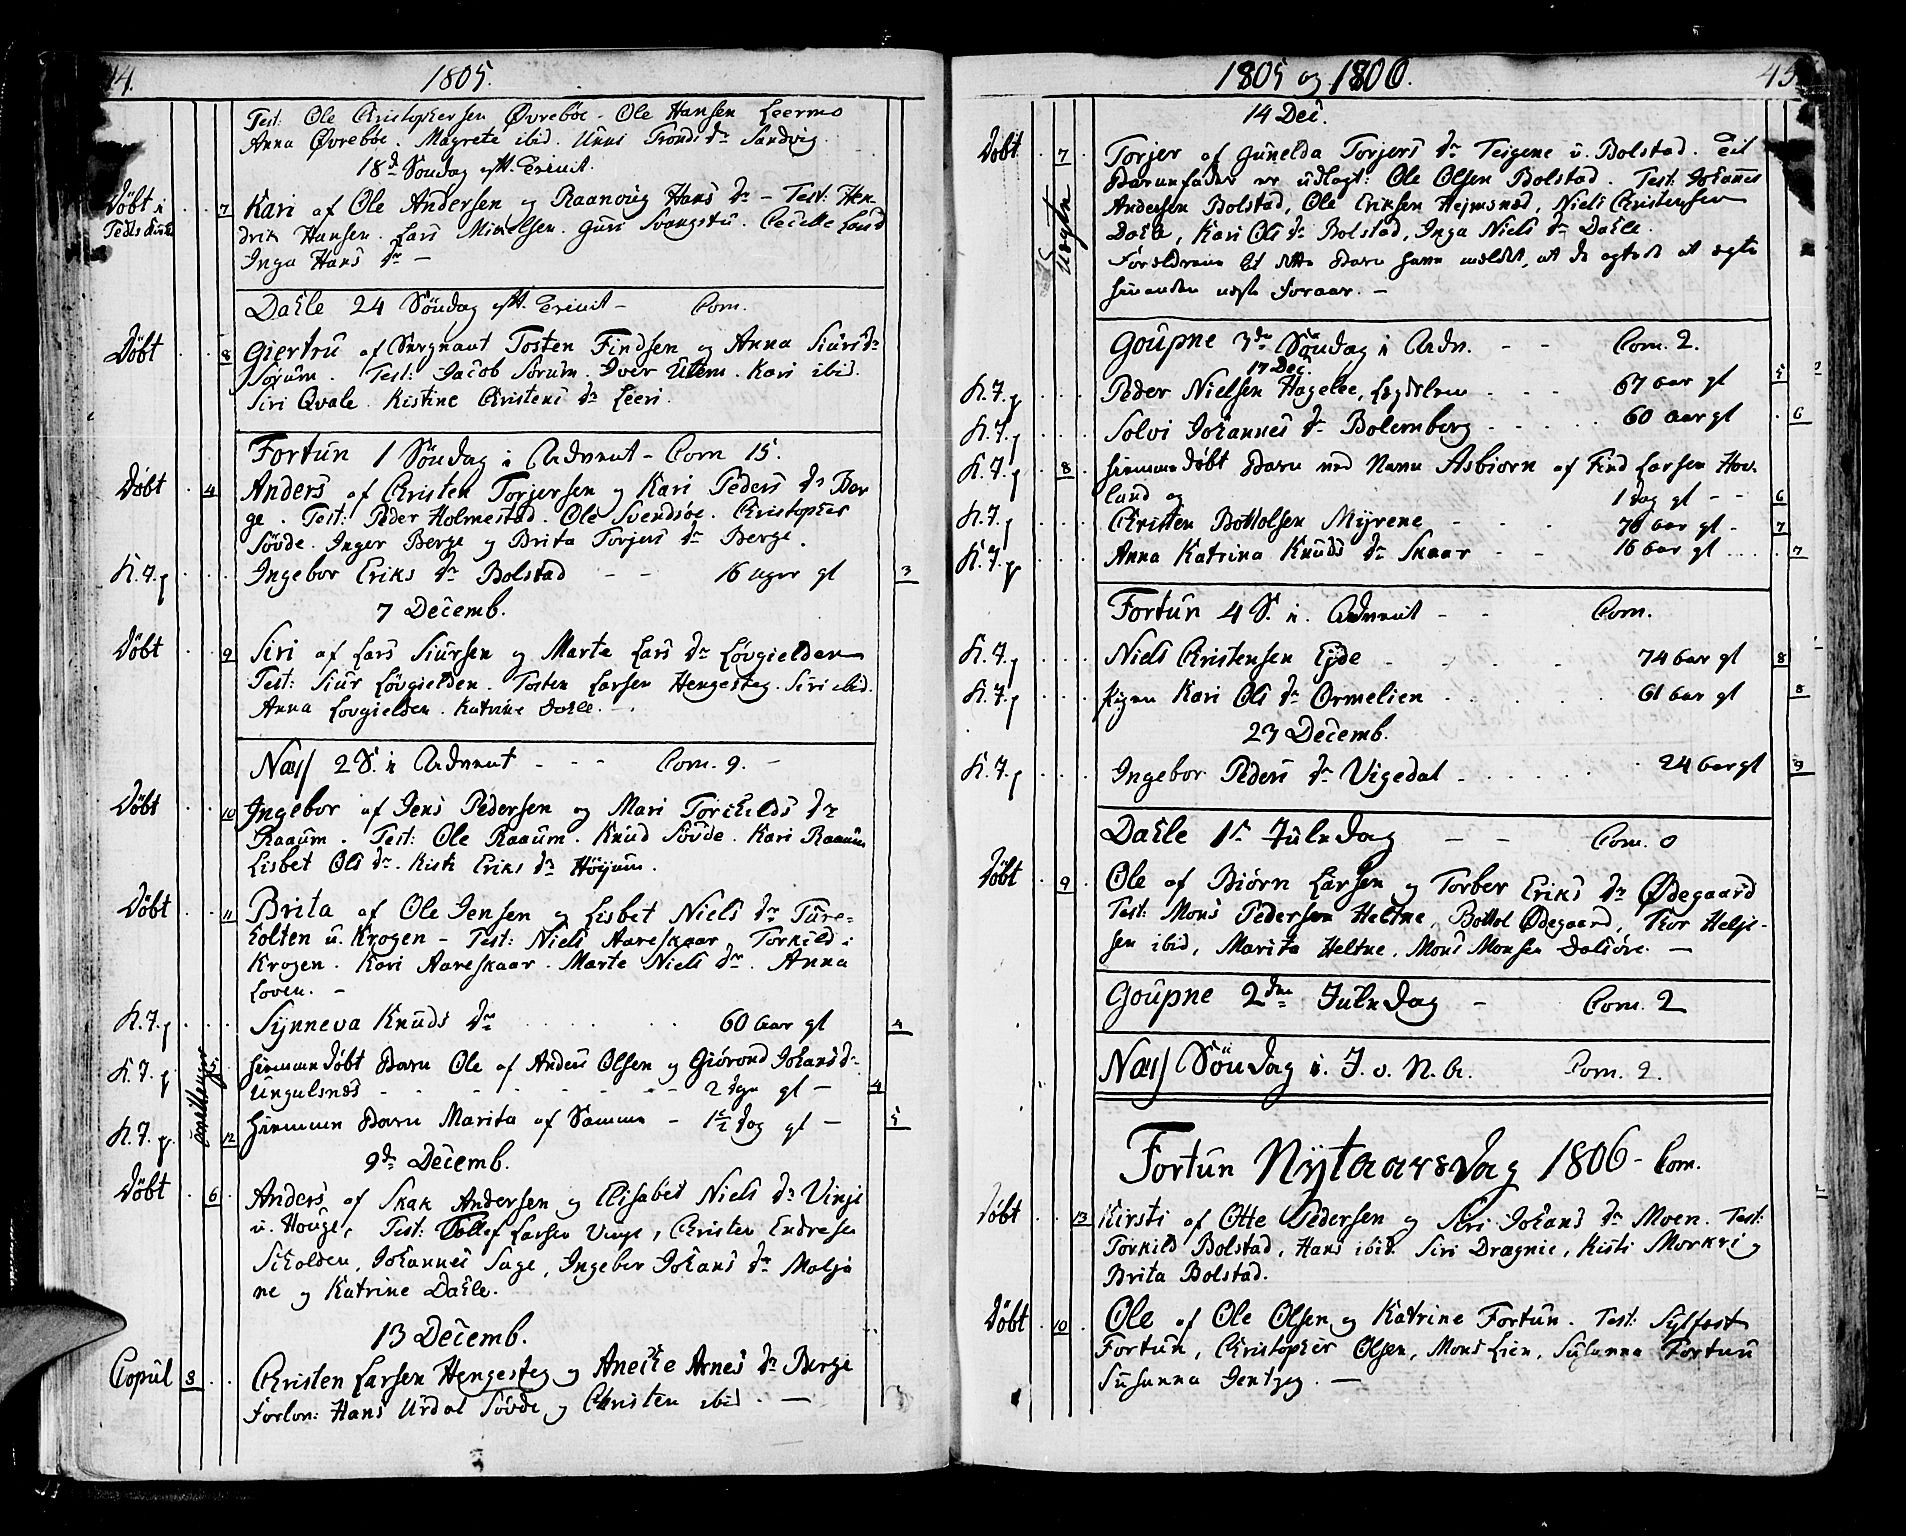 44.
1805.
Test: Ole Christophersen Øvreboe. Ole Hansen Leermo
Anna Øvreboe. Magrete ibid. Unni Tronds dr Sandvig
18de Söndag eft. Trinit.
Döbt i 7 Kari af Ole Andersen og Raanoug Hans dr – Test: Hen
drik Hansen. Lars Mikelsen. Guri Svangstu. Cecille
Inga Hans dr –
Dahle 24 Söndag eft. Trinit – Com.
Döbt 8 Giertru af Sergeant Tosten Findsen og Anna Siurs dr
Sorum. Test: Jacob Sorum. Iver Utem. Kari ibid.
Siri Qvale. Kistine Christens dr Leeri.
Fortun 1 Söndag i Advent – Com 15.
Döbt 4 Anders af Christen Torjersen og Kari Peders dr Ber
ge. Test: Peder Holmestad. Ole Svensöe. Christopher
Sövde. Inger Berge og Brita Torjers dr Berge.
K. J. p Ingebor Eriks dr Bolstad – – 16 uger gl 3
7 Decemb.
Döbt 9 Siri af Lars Siursen og Marte Lars dr Lövgielden
Test: Siur Lövgielden. Tosten Larsen Hengesteg. Siri ibid.
Anna Lovgielden. Katrine Dahle. –
Næss 2 S. i Advent – – – Com. 9. –
Döbt 10 Ingebor af Jens Pedersen og Mari Torchilds dr
Raaum. Test: Ole Raaum. Knud Sövde. Kari Raaum
Lisbet Ols dr. Kisti Eriks dr Höyum.
Döbt 11 Brita af Ole Jensen og Lisbet Niels dr Ture-
holten u. Krogen – Test: Niels Aareskaar. Torkild i
Krogen. Kari Aareskaar. Marte Niels dr. Anna
Loven. –
K. J. p Synneva Knuds dr 60 aar gl 4
K. J. p 5. hiemme döbt Barn Ole af Anders Olsen og Giörond Johans dr
Ungulsnæs 2 dge gl – 4
K. J. p. 12 hiemme Barn Marita af Samme – 1½ dag gl – 5
9de Decemb.
Döbt 6 Anders af Skak Andersen og Elisabet Niels dr Vinje
u. Houge, Test: Tollef Larsen Vinje, Christen Endresen
Skolden, Johannes Sage, Ingeber Johans dr Molja
ne og Katrine Dahle.
13 Decemb.
Copul 3 Christen Larsen Hengesteg og Aneche Arnes dr Berge
Forlov: Hans Urdal Sövde og Christen ibid. –
1805 og 1806.
45
14 Dec.
Döbt 7 Torjer af Gunelda Torjers dr Teigene u. Bolstad. Til
Uægte
Barnefader er udlagt: Ole Olsen Bolstad. Test: Johannes
Andersen Bolstad, Ole Eriksen Hejmsnæs, Niels Christensen
Dahle, Kari Ols dr Bolstad, Inga Niels dr Dahle.
Forældrene til dette Barn have meldet, at de agtede at ægte
hinanden næste Foraar. –
Goupne 3de Söndag i Adv. – – Com. 2.
17 Dec.
K. J. p Peder Nielsen Hagelee, Lægdslem 67 aar gl 5
K. J. p Solvi Johannes dr Bolemberg 60 aar gl 6
K. J. p 8 hiemme döbt Barn ved Navn Asbiörn af Find Larsen Hov-
land og 1 dag gl – – 6
K. J. p Christen Bottolsen Myrene 76 aar gl – 7
K. J. p Anna Katrina Knuds dr Skaar 16 aar gl 7
Fortun 4 S. i. Advent – – Com.
K. J. p Niels Christensen Ejde 74 aar gl 8
K. J. p Pigen Kari Ols dr Ormelien 61 aar gl 8
23 Decemb.
K. J. p Ingebor Peders dr Vigedal 24 aar gl 9
Dahle 1st Juledag – – Com. 0
Döbt 9 Ole af Biörn Larsen og Torber Eriks dr Ødegaard
Test: Mons Pedersen Heltne, Bottol Ødegaard, Thor Helje-
sen ibid, Marita Heltne. Mons Monsen Dalsöre. –
Goupne 2den Juledag – Com. 2
Næss Söndag i. J. o. N. A. Com. 2.
Fortun Nytaarsdag 1806 – Com.
Döbt 13 Kirsti af Otte Pedersen og Siri Johans dr Moen. Test:
Torkild Bolstad, Hans ibid. Siri Drægnie, Kisti Morkri og
Brita Bolstad.
Döbt 10 Ole af Ole Olsen og Katrine Fortun. Test: Sylfest
Fortun, Christopher Olsen, Mons Lien, Susanna Fortun
Susanna –